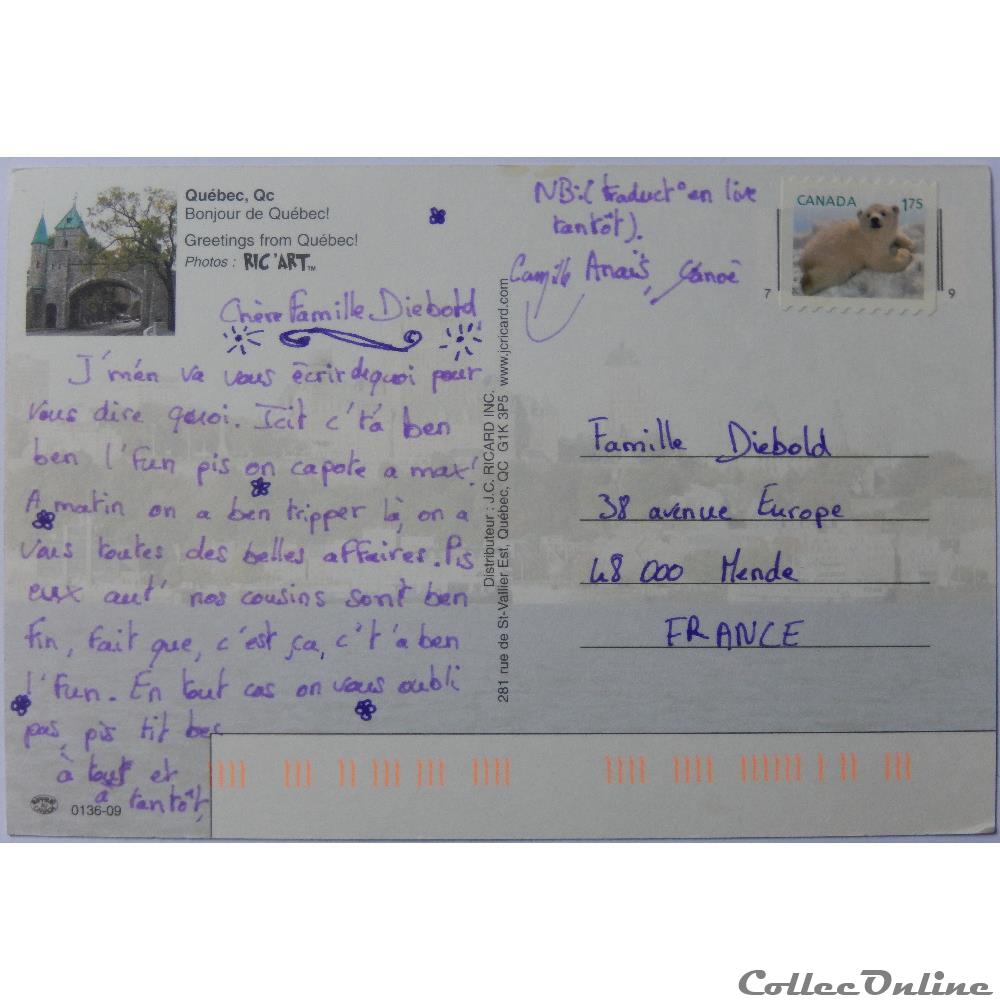 Québec, Qc
Bonjour de Québec!
Greetings from Québec!
Photos : RIC'ART™
Chère Famille Diebold
J'm'en va vous écrir dequoi pour
vous dire quoi. Icit c't'à ben
ben l'fun pis on capote a max!
A matin on a ben tripper là, on a
vous toutes des belles affaires. Pis
eux aut' nos cousins sont ben
fin, fait que, c'est ça, c't'à ben
l'fun. En tout cas on vous oubli
pas, pis tit bec
à tous et
à tantôt,
0136-09
Distributeur : J.C. RICARD INC.
281 rue de St-Vallier Est, Québec, QC G1K 3P5 www.jcricard.com
NB:(traduct° en live
tantôt).
Camille Anaïs, Canoë
CANADA 1.75
7 9
Famille Diebold
38 avenue Europe
48 000 Mende
FRANCE
CollecOnline